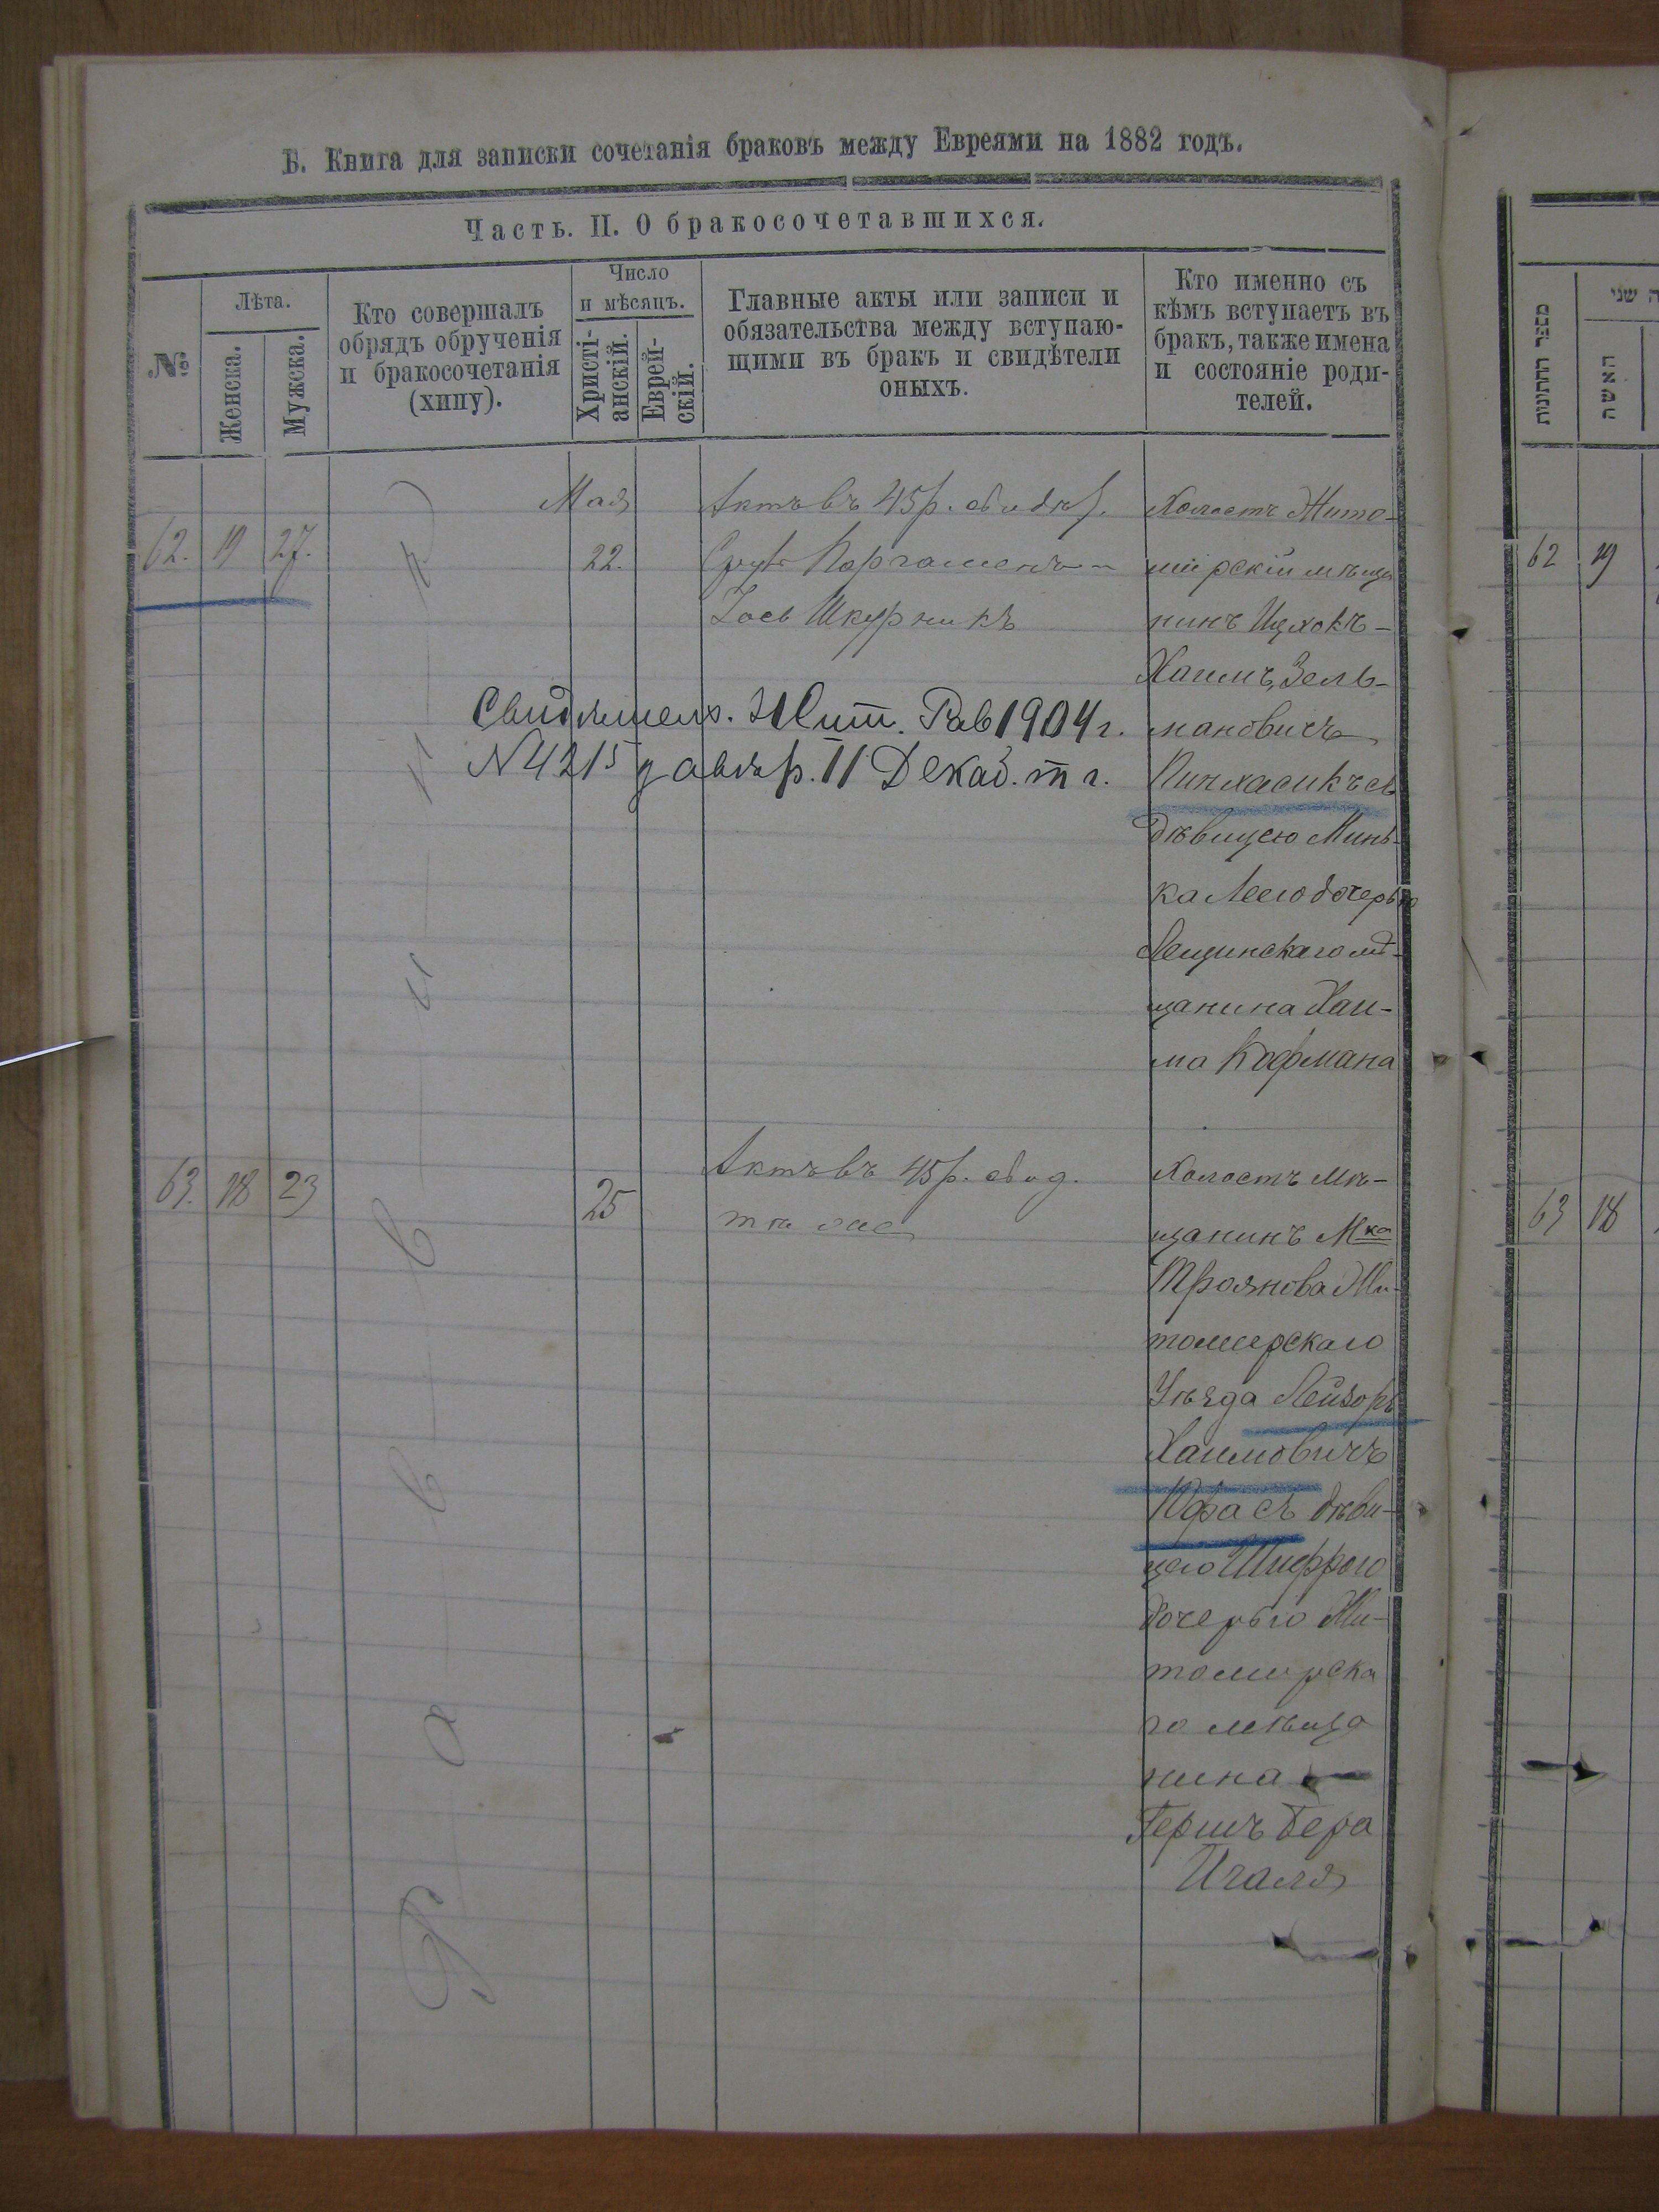 Б. Книга для записки сочетанія браковъ между Евреями на 1882 годъ.
Часть. II. О бракосочетавшихся.
№
Лѣта.
Женска.
Мужска.
Кто совершалъ
обрядъ обрученія
и бракосочетанія
(хипу).
Число
и мѣсяцъ.
Христі-
анскій.
Еврей-
скій.
Главные акты или записи и
обязательства между вступаю-
щими въ бракъ и свидѣтели
оныхъ.
Кто именно съ
кѣмъ вступаетъ въ
бракъ, также имена
и состояніе роди-
телей.
Раввинъ
62. 19 27.
Мая
22.
Актъ въ 45 р. свидѣт.
Пергаменъ
Іось Шкурникъ
Свидѣтел. Жит. Рав 1904 г.
N 4215 завѣр. 11 Декаб. т г.
Холостъ Жито-
мірскій мѣща
нинъ Ицхокъ-
Хаимъ Зель-
мановичъ
Пинхасикъ съ
дѣвицею Минь-
ка Леею дочерью
Лещинскаго мѣ-
щанина Хаи-
ма Кофмана
63. 18 23
25
Актъ въ 45 р. свид.
тѣ же
Холостъ мѣ-
щанинъ Мка
Троянова Жи-
томирскаго
Уѣзда Лейзоръ
Хаимовичъ
Юфа съ дѣви-
цею Шифрою
дочерью Жи-
томирска
го мѣща
нина
Гершъ Бера
Игаля
מספר החתונות
האשה
ה שני
62 19
63 18